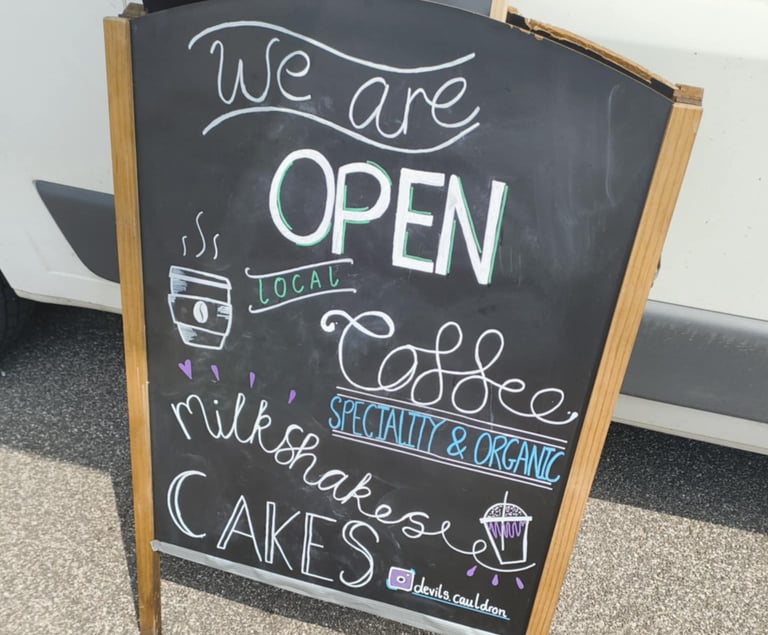 We are
OPEN
LOCAL
Coffee
SPECIALITY & ORGANIC
Milkshakes
CAKES
devils.cauldron